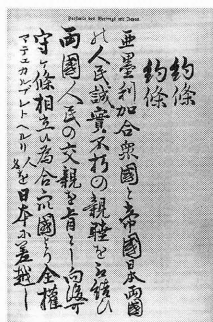 Facsimile des Vertrags mit Japan
約條
約條
亜墨利加合衆國と帝國日本両國
の人民誠實不朽の親睦を取結ひ
両國人民の交親を旨とし向後可
守ケ條相立候為合衆國より全權
マテエカルブレトヘルリ人名を日本に差越し